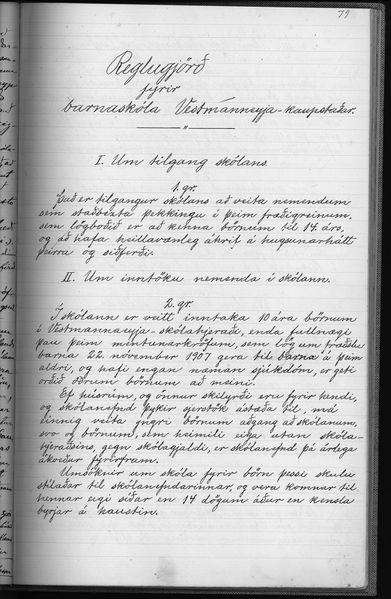 79
Reglugjörð
fyrir
barnaskóla Vestmanneyja-kaupstaðar.
I. Um tilgang skólans.
1. gr.
Það er tilgangur skólans að veita nemendum
sem staðbezta þekkingu í þeim fræðigreinum,
sem lögboðið er að kenna börnum til 14. árs,
og að hafa heillavænleg áhrif á hugsunarhátt
þeirra og siðferði.
II. Um inntöku nemenda í skólann.
2. gr.
Í skólann er veitt inntaka 10 ára börnum
í Vestmannaeyja-skólahjeraði, enda fullnægi
þau þeim mentunarkröfum, sem lög um fræðslu
barna 22. nóvember 1907 gera til barna á þeim
aldri, og hafi engan næman sjúkdóm, er geti
orðið öðrum börnum að meini.
Ef húsrúm, og önnur skilyrði eru fyrir hendi,
og skólanefnd þykir sjerstök ástæða til, má
einnig veita yngri börnum aðgang að skólanum,
svo og börnum, sem heimili eiga utan skóla-
hjeraðsins, gegn skólagjaldi, er skólanefnd þá árlega
ákveður fyrirfram.
Umsóknir um skóla fyrir börn þessi skulu
stílaðar til skólanefndarinnar, og vera komnar til
hennar eigi síðar en 14 dögum áður en kensla
byrjar á haustin.